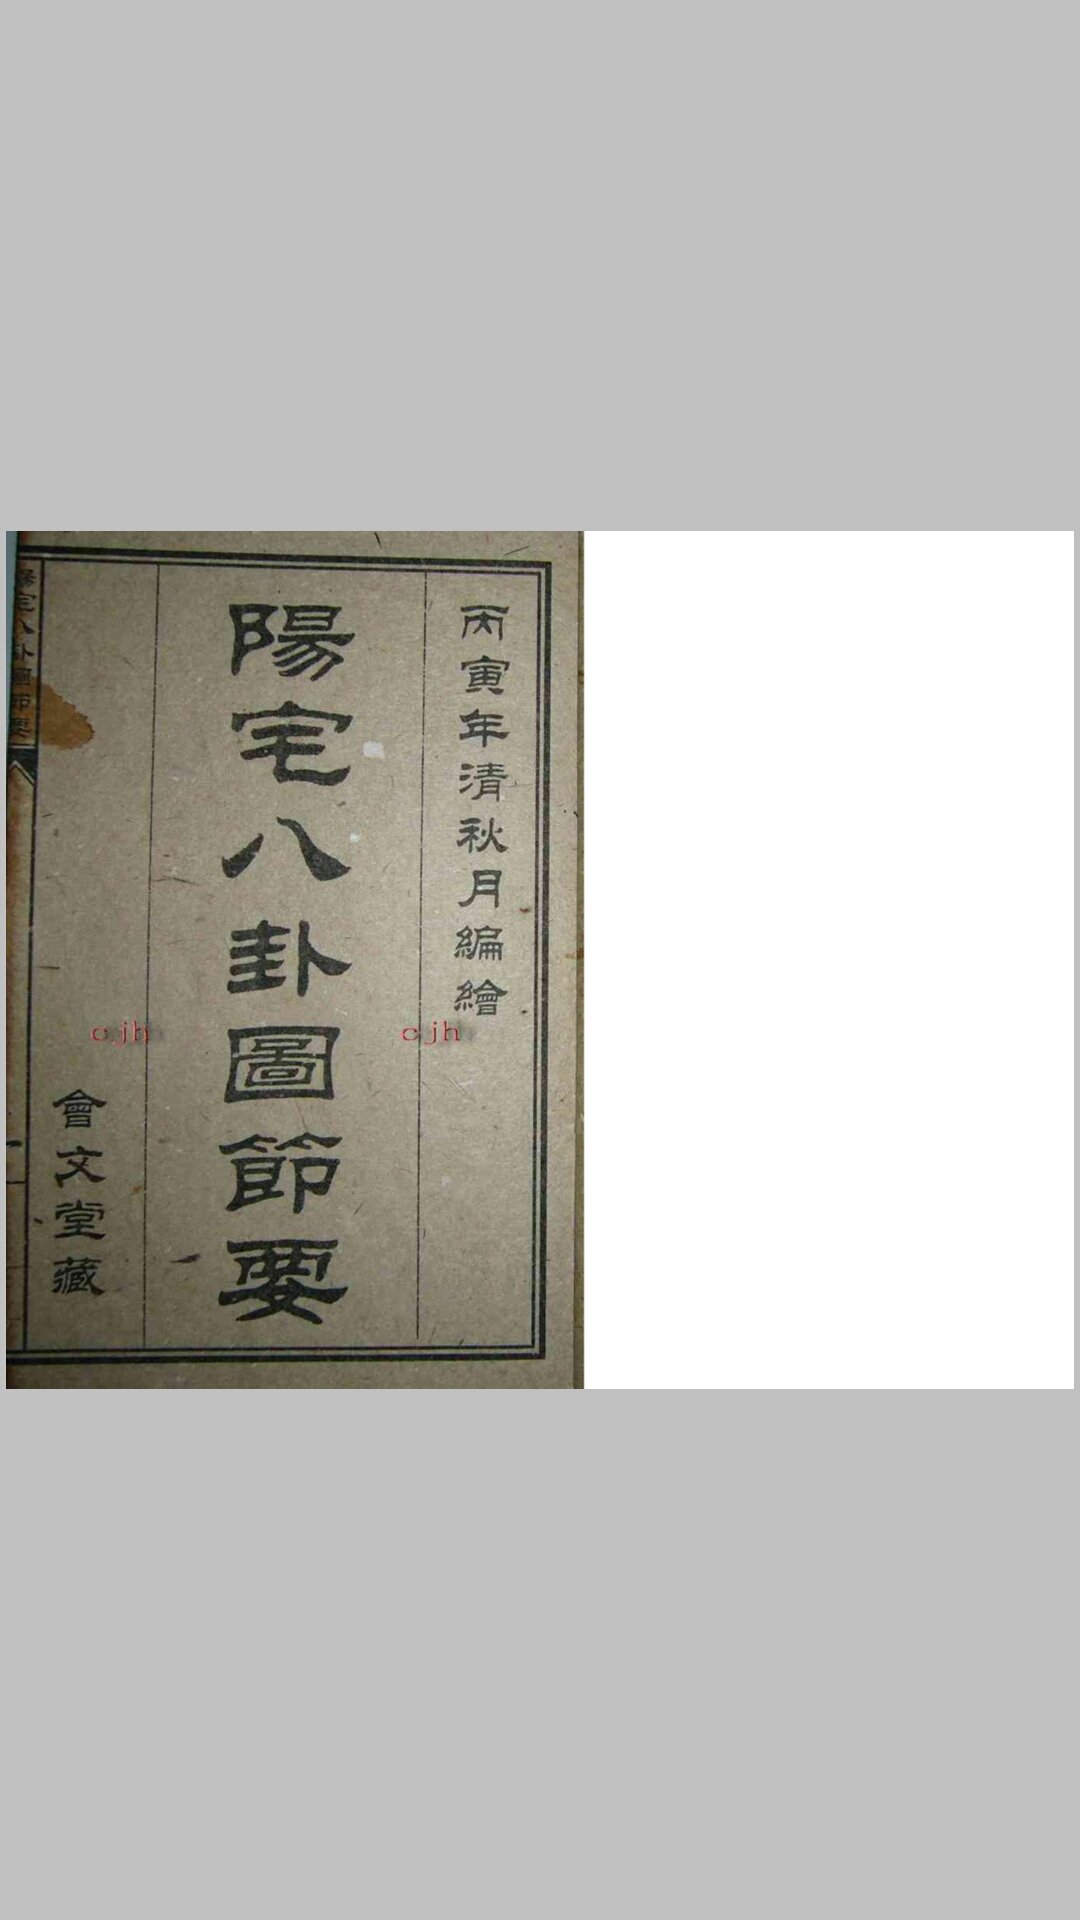 丙寅年清秋月編繪
陽宅八卦圖節要
會文堂藏
陽宅八卦圖節要
cjh
cjh